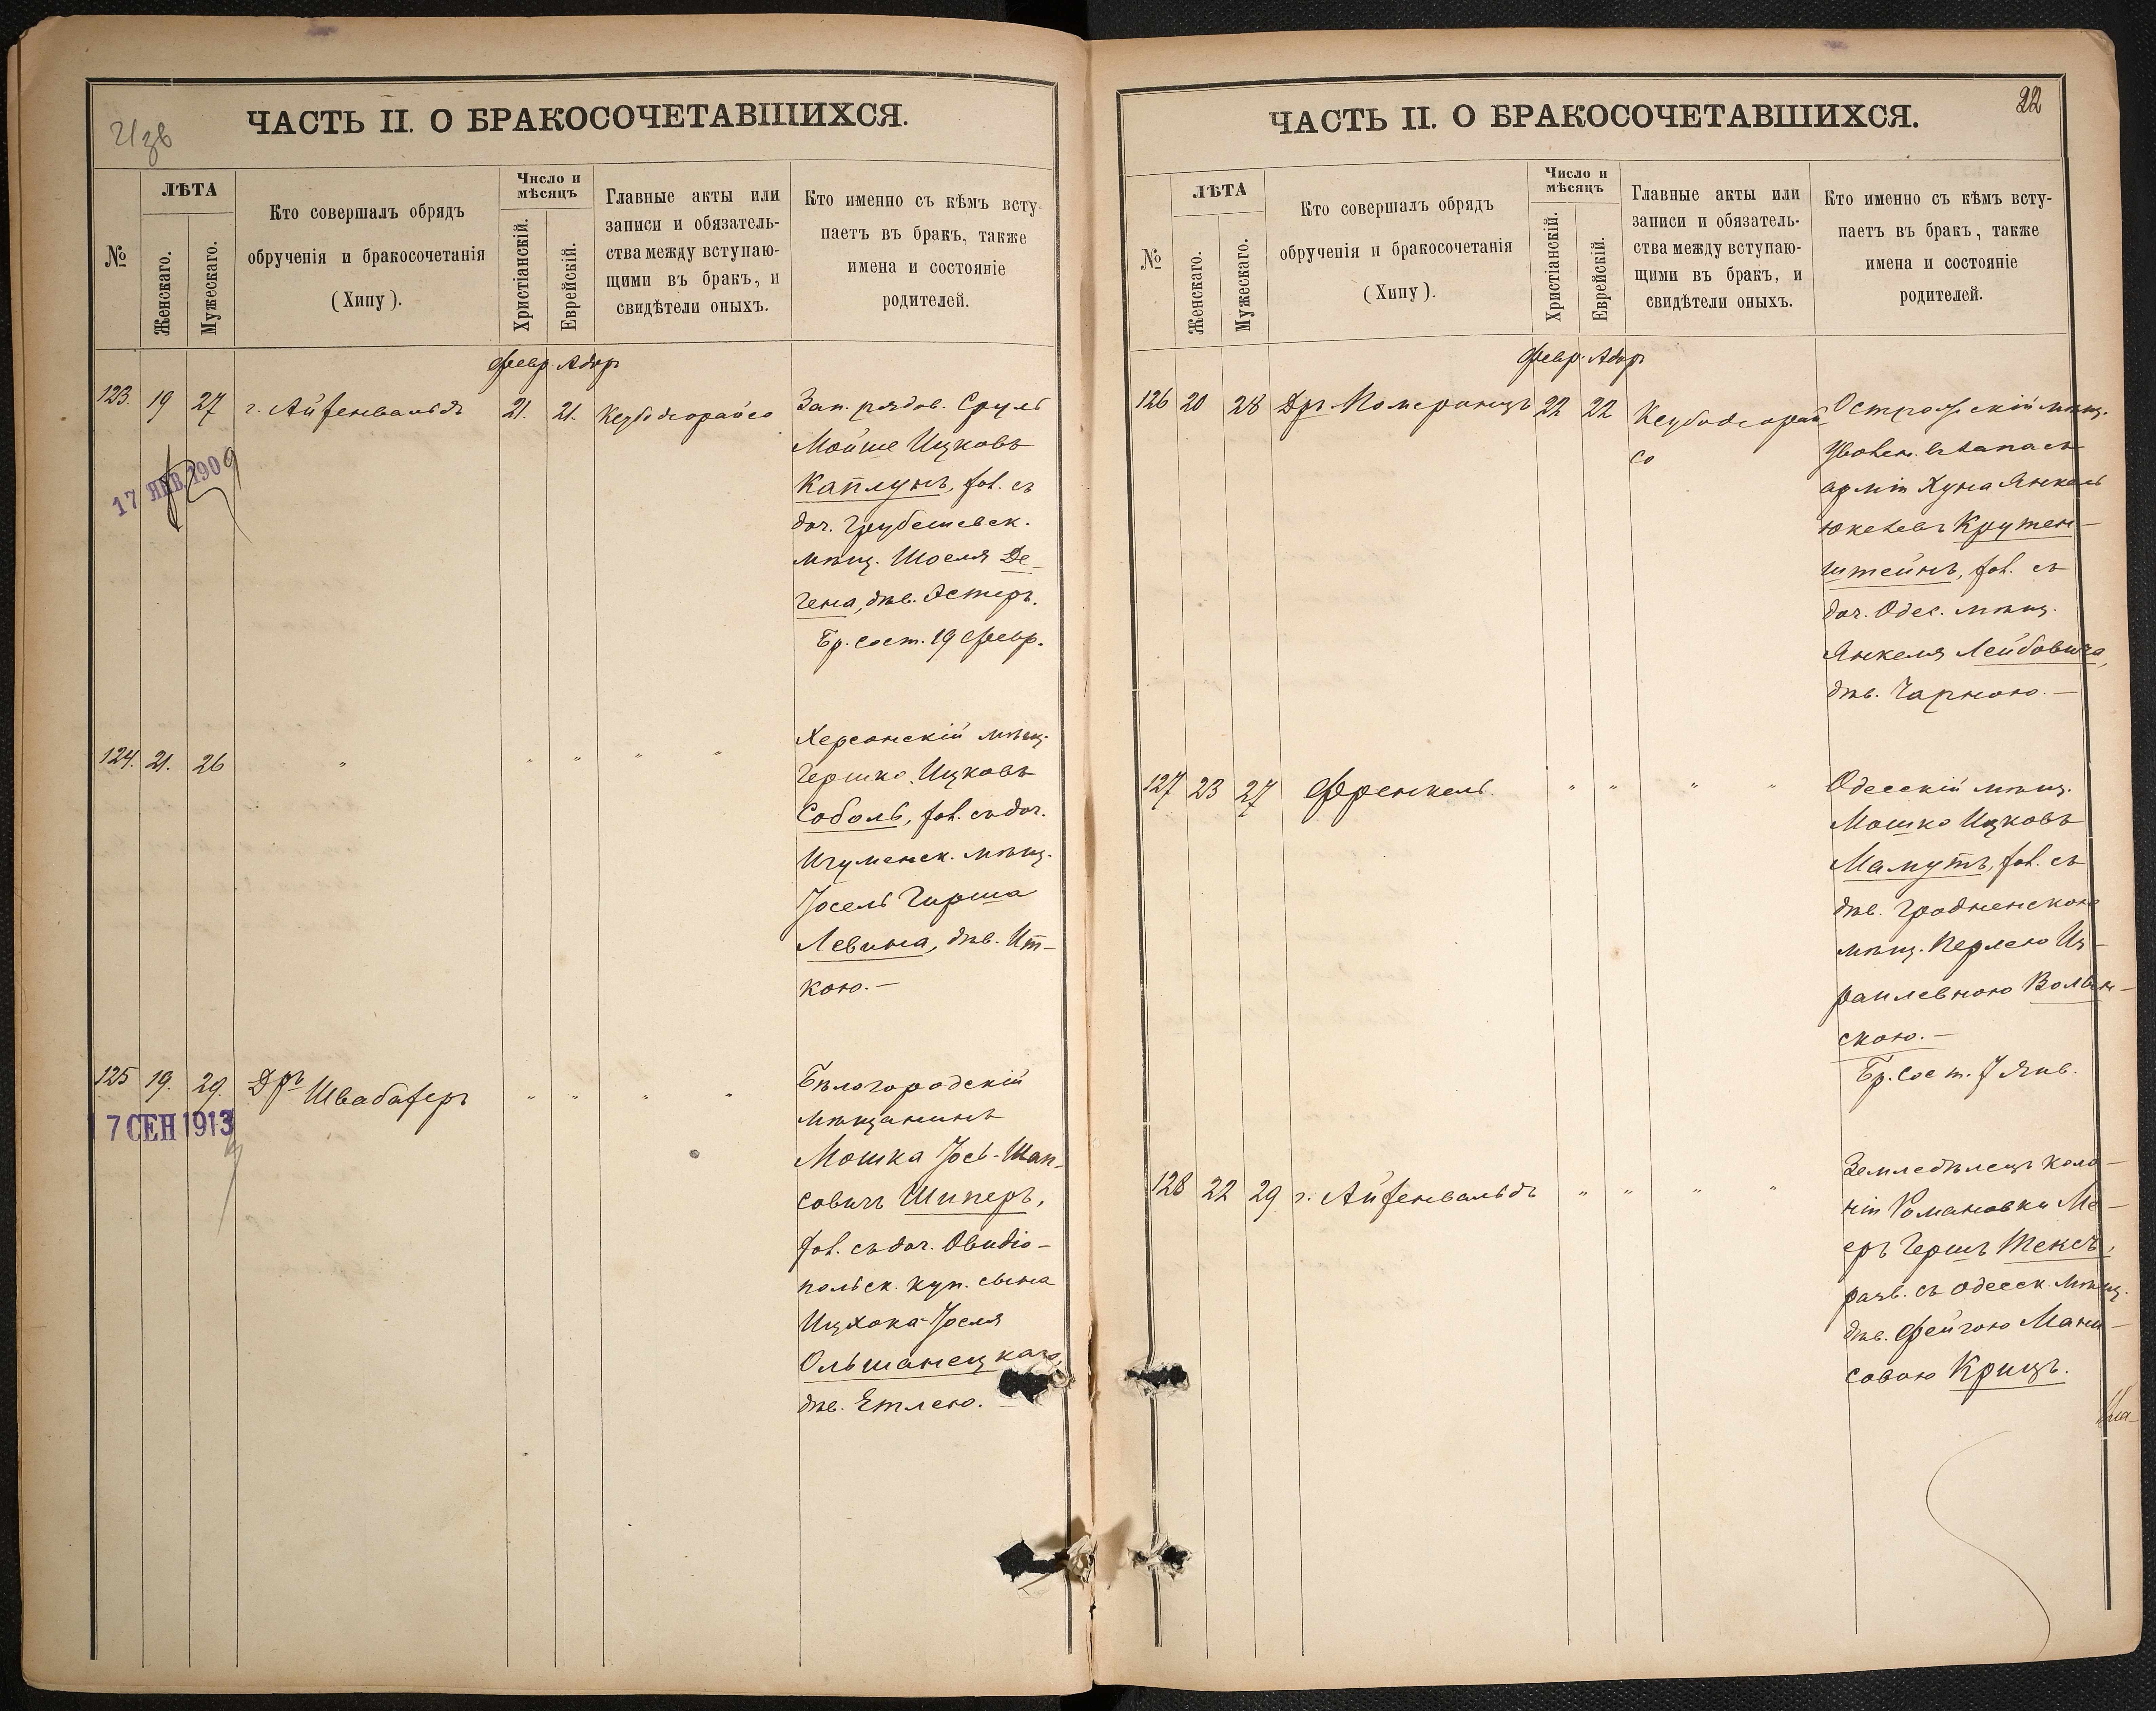 21 зв
ЧАСТЬ II. О БРАКОСОЧЕТАВШИХСЯ.
№
ЛѢТА
Женскаго.
Мужескаго.
Кто совершалъ обрядъ
обрученія и бракосочетанія
(Хипу).
Число и
мѣсяцъ
Христіанскій.
Еврейскій.
Главные акты или
записи и обязатель-
ства между вступаю-
щими въ бракъ, и
свидѣтели оныхъ.
Кто именно съ кѣмъ всту-
паетъ въ бракъ, также
имена и состояніе
родителей.
Февр. Адаръ
123. 19 27 г. Айзенвальдъ 21. 21. Кезубодеорайсо
Зап. рядов. Сруль
Мойше Ицковъ
Каплунъ, хол. съ
доч. Грубешевск.
мѣщ. Шоеля Де-
гена, дѣв. Эстеръ.
Бр. сост. 19 Февр.
17 ЯНВ. 1909
124. 21. 26 " " " " "
Херсонскій мѣщ.
Гершко Ицковъ
Соболь, хол. съ доч.
Игуменск. мѣщ.
Іосель Гирша
Левина, дѣв. Ит-
кою.—
125 19. 29. Дръ Швабахеръ " " " "
17 СЕН 1913
Бѣлогородскій
мѣщанинъ
Мошка Іос.-Шап-
совичъ Шиперъ,
хол. съ доч. Овидіо-
польск. куп. сына
Ицхока-Іоселя
Ольшанецкаго,
дѣв. Етлею.
22
ЧАСТЬ II. О БРАКОСОЧЕТАВШИХСЯ.
№
ЛѢТА
Женскаго.
Мужескаго.
Кто совершалъ обрядъ
обрученія и бракосочетанія
(Хипу).
Число и
мѣсяцъ
Христіанскій.
Еврейскій.
Главные акты или
записи и обязатель-
ства между вступаю-
щими въ бракъ, и
свидѣтели оныхъ.
Кто именно съ кѣмъ всту-
паетъ въ бракъ, также
имена и состояніе
родителей.
Февр. Адаръ
126 20 28 Дръ Померанцъ 22 22 Кезубодеорай
со
Острожскій мѣщ.
уволен. въ запасъ
арміи Хуна Янкель
Крутен-
штейнъ, хол. съ
доч. Одес. мѣщ.
Янкеля Лейбовича,
дѣв. Чарною.—
127 23 27 Френкель. " " " "
Одесскій мѣщ.
Мошко Ицковъ
Мамутъ, хол. съ
дѣв. Гродненскою
мѣщ. Перлею Из-
раилевною Волын-
скою.—
Бр. сост. 7 Янв.
128 22 29 г. Айзенвальдъ " " " "
Земледѣлецъ коло-
ніи Романовки Ме-
еръ Гершъ Тексъ,
разв. съ одесск. мѣщ.
дѣв. Фейгою Мани-
совою Крицъ.